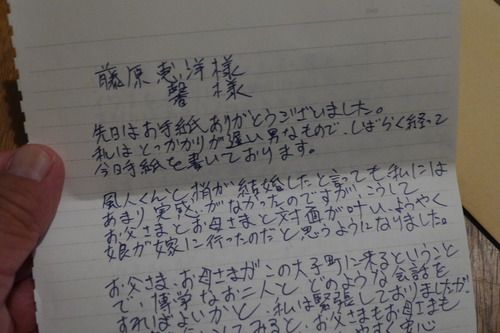 藤原恵洋様
馨 様
先日はお手紙ありがとうございました。
私はとっかかりが遅い男なもので、しばらく経って
今日手紙を書いております。
風人くんと梢が結婚したと言っても私には
あまり実感がなかったのですが、こうして
お父さまとお母さまと対面が叶い、ようやく
娘が嫁に行ったのだと思うようになりました。
お父さま、お母さまがこの大子町に来るということ
で、博学なお二人と、どのような会話を
すればよいかと、私は緊張しておりましたが、
みると、お父さまもお母さまも